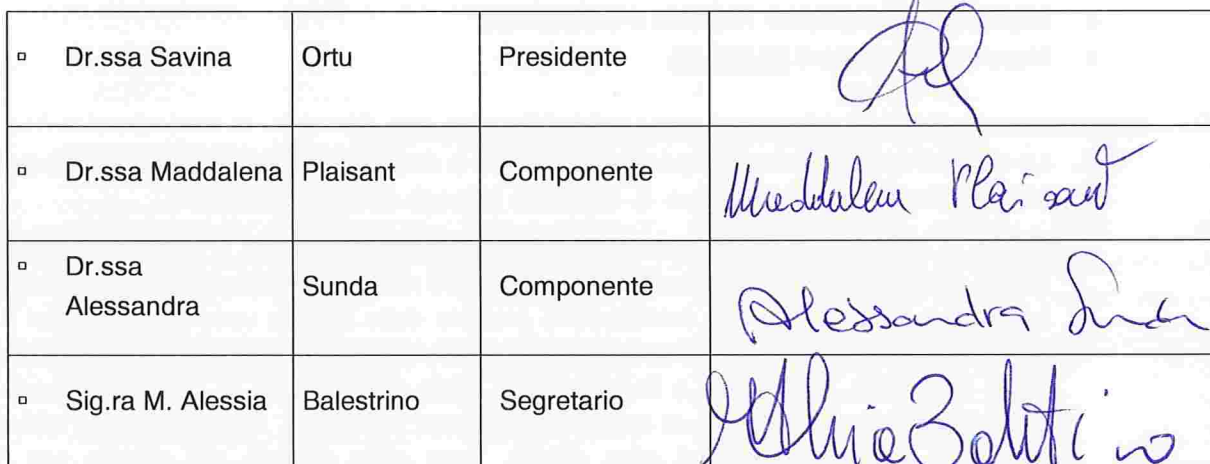 ▫ Dr.ssa Savina Ortu Presidente
▫ Dr.ssa Maddalena Plaisant Componente Maddalena Plaisant
▫ Dr.ssa Alessandra Sunda Componente Alessandra Sunda
▫ Sig.ra M. Alessia Balestrino Segretario